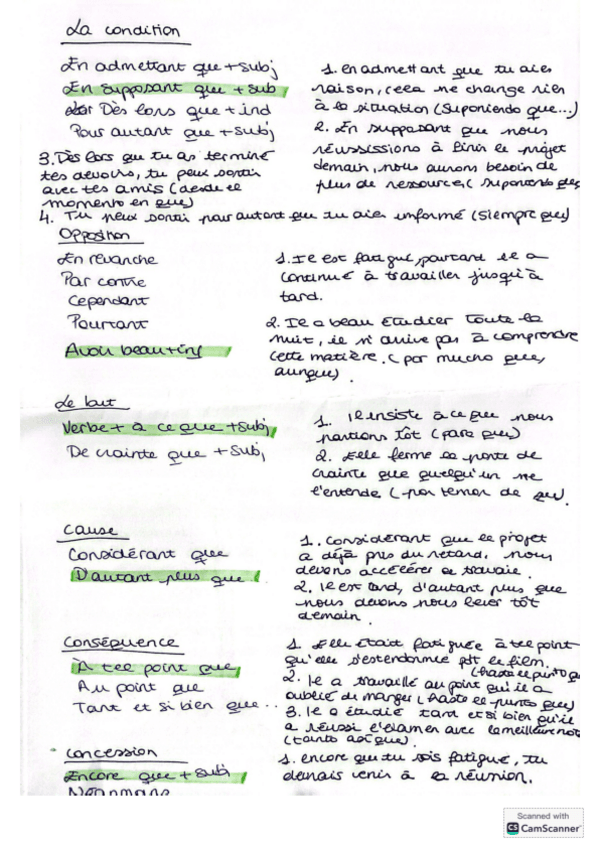 La condition
En admettant que + subj
En supposant que + sub
Dès lors que + ind
Pour autant que + subj
1. en admettant que tu aies
raison, cela ne change rien
à la situation (Suponiendo que...)
2. En supposant que nous
réussissions à finir le projet
demain, nous aurons besoin de
plus de ressource (suponiendo que
3. Dès lors que tu as terminé
tes devoirs, tu peux sortir
avec tes amis (desde el
momento en que)
4. Tu peux sortir pour autant que tu aies informé (siempre que)
Opposition
En revanche
Par contre
Cependant
Pourtant
Avoir beau + inf
1. Il est fatigué, pourtant il a
continué à travailler jusqu'à
tard.
2. Il a beau étudier toute la
nuit, il n'arrive pas à comprendre
cette matière. (por mucho que,
aunque).
Le but
Verbe + à ce que + subj
De crainte que + subj
1. Il insiste à ce que nous
partions tôt (para que)
2. Elle ferme la porte de
crainte que quelqu'un ne
l'entende (por temor de que).
Cause
Considérant que
D'autant plus que
1. Considérant que le projet
a déjà pris du retard, nous
devons accélérer le travail.
2. Il est tard, d'autant plus que
nous devons nous lever tôt
demain.
Conséquence
À tel point que
Au point que
Tant et si bien que...
1. Elle était fatiguée à tel point
qu'elle s'est endormie pdt le film.
(hasta el punto q
2. Il a travaillé au point qu'il a
oublié de manger (hasta el punto que)
3. Il a étudié tant et si bien qu'il
a réussi l'examen avec la meilleure not
(tanto así que).
Concession
Encore que + subj
Néanmoins
1. encore que tu sois fatigué, tu
devrais venir à la réunion.
Scanned with
CS CamScanner